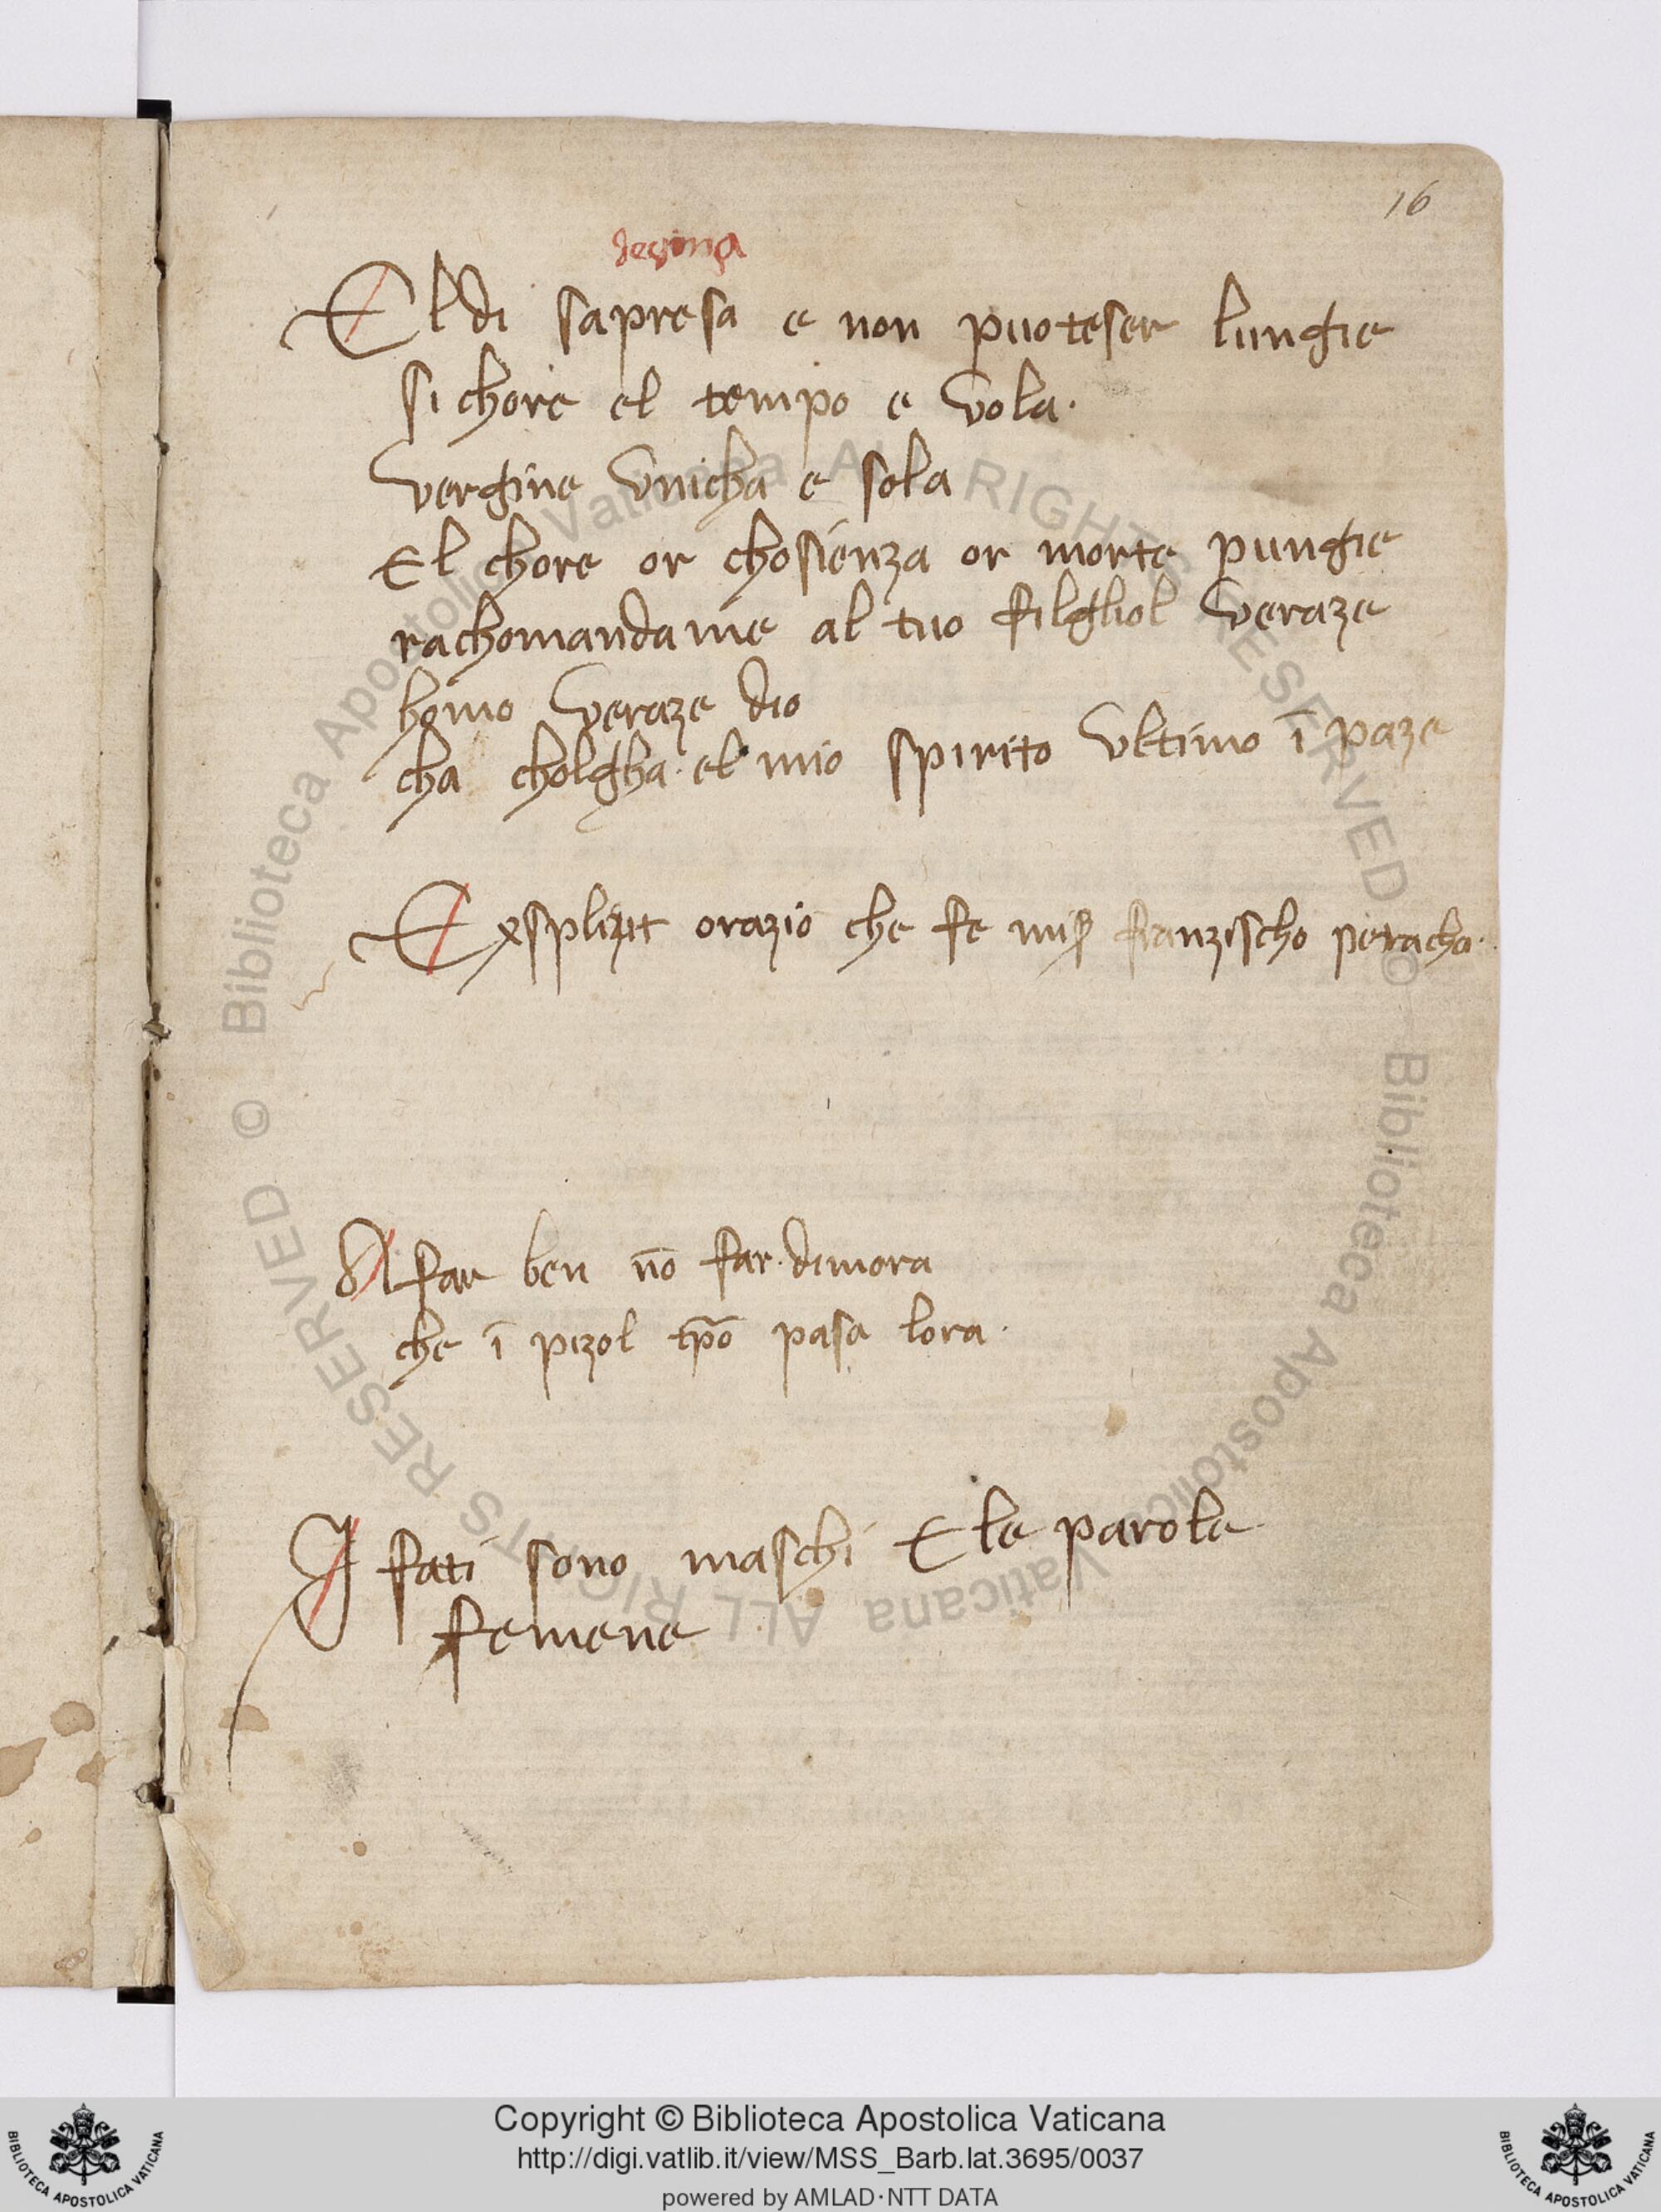 16
El di sapresa e non puoteser lungie
si chore el tempo e vola.
vergine vnicha e sola
El chore or chosienza or morte pungie
rachomandame al tuo filghol veraze
homo veraze dio
cha cholgha el mio spirito vltimo ī paze
Exsplizit orazio che fe mis̄ franzischo petracha.
A far ben nō far dimora
che ī pizol tp̄o pasa lora.
I fati sono maschi E le parole
femene
© Biblioteca Apostolica Vaticana ALL RIGHTS RESERVED © Biblioteca Apostolica Vaticana ALL RIGHTS RESERVED
Copyright © Biblioteca Apostolica Vaticana
http://digi.vatlib.it/view/MSS_Barb.lat.3695/0037
powered by AMLAD·NTT DATA
BIBLIOTECA APOSTOLICA VATICANA
BIBLIOTECA APOSTOLICA VATICANA